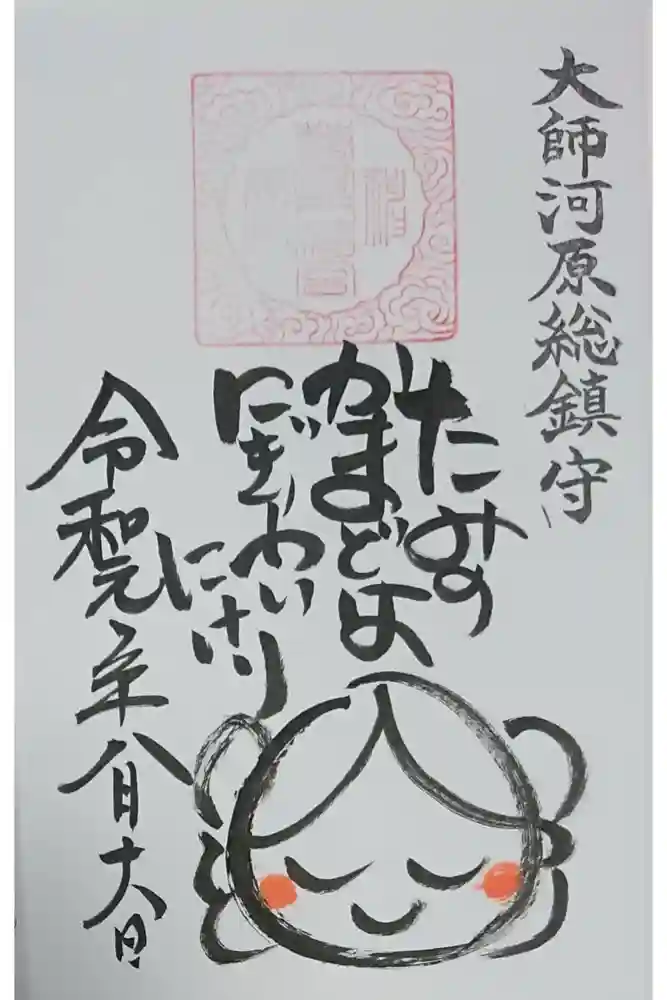 大師河原総鎮守
たみの
かまどは
にぎわい
にけり
令和元年八月 日